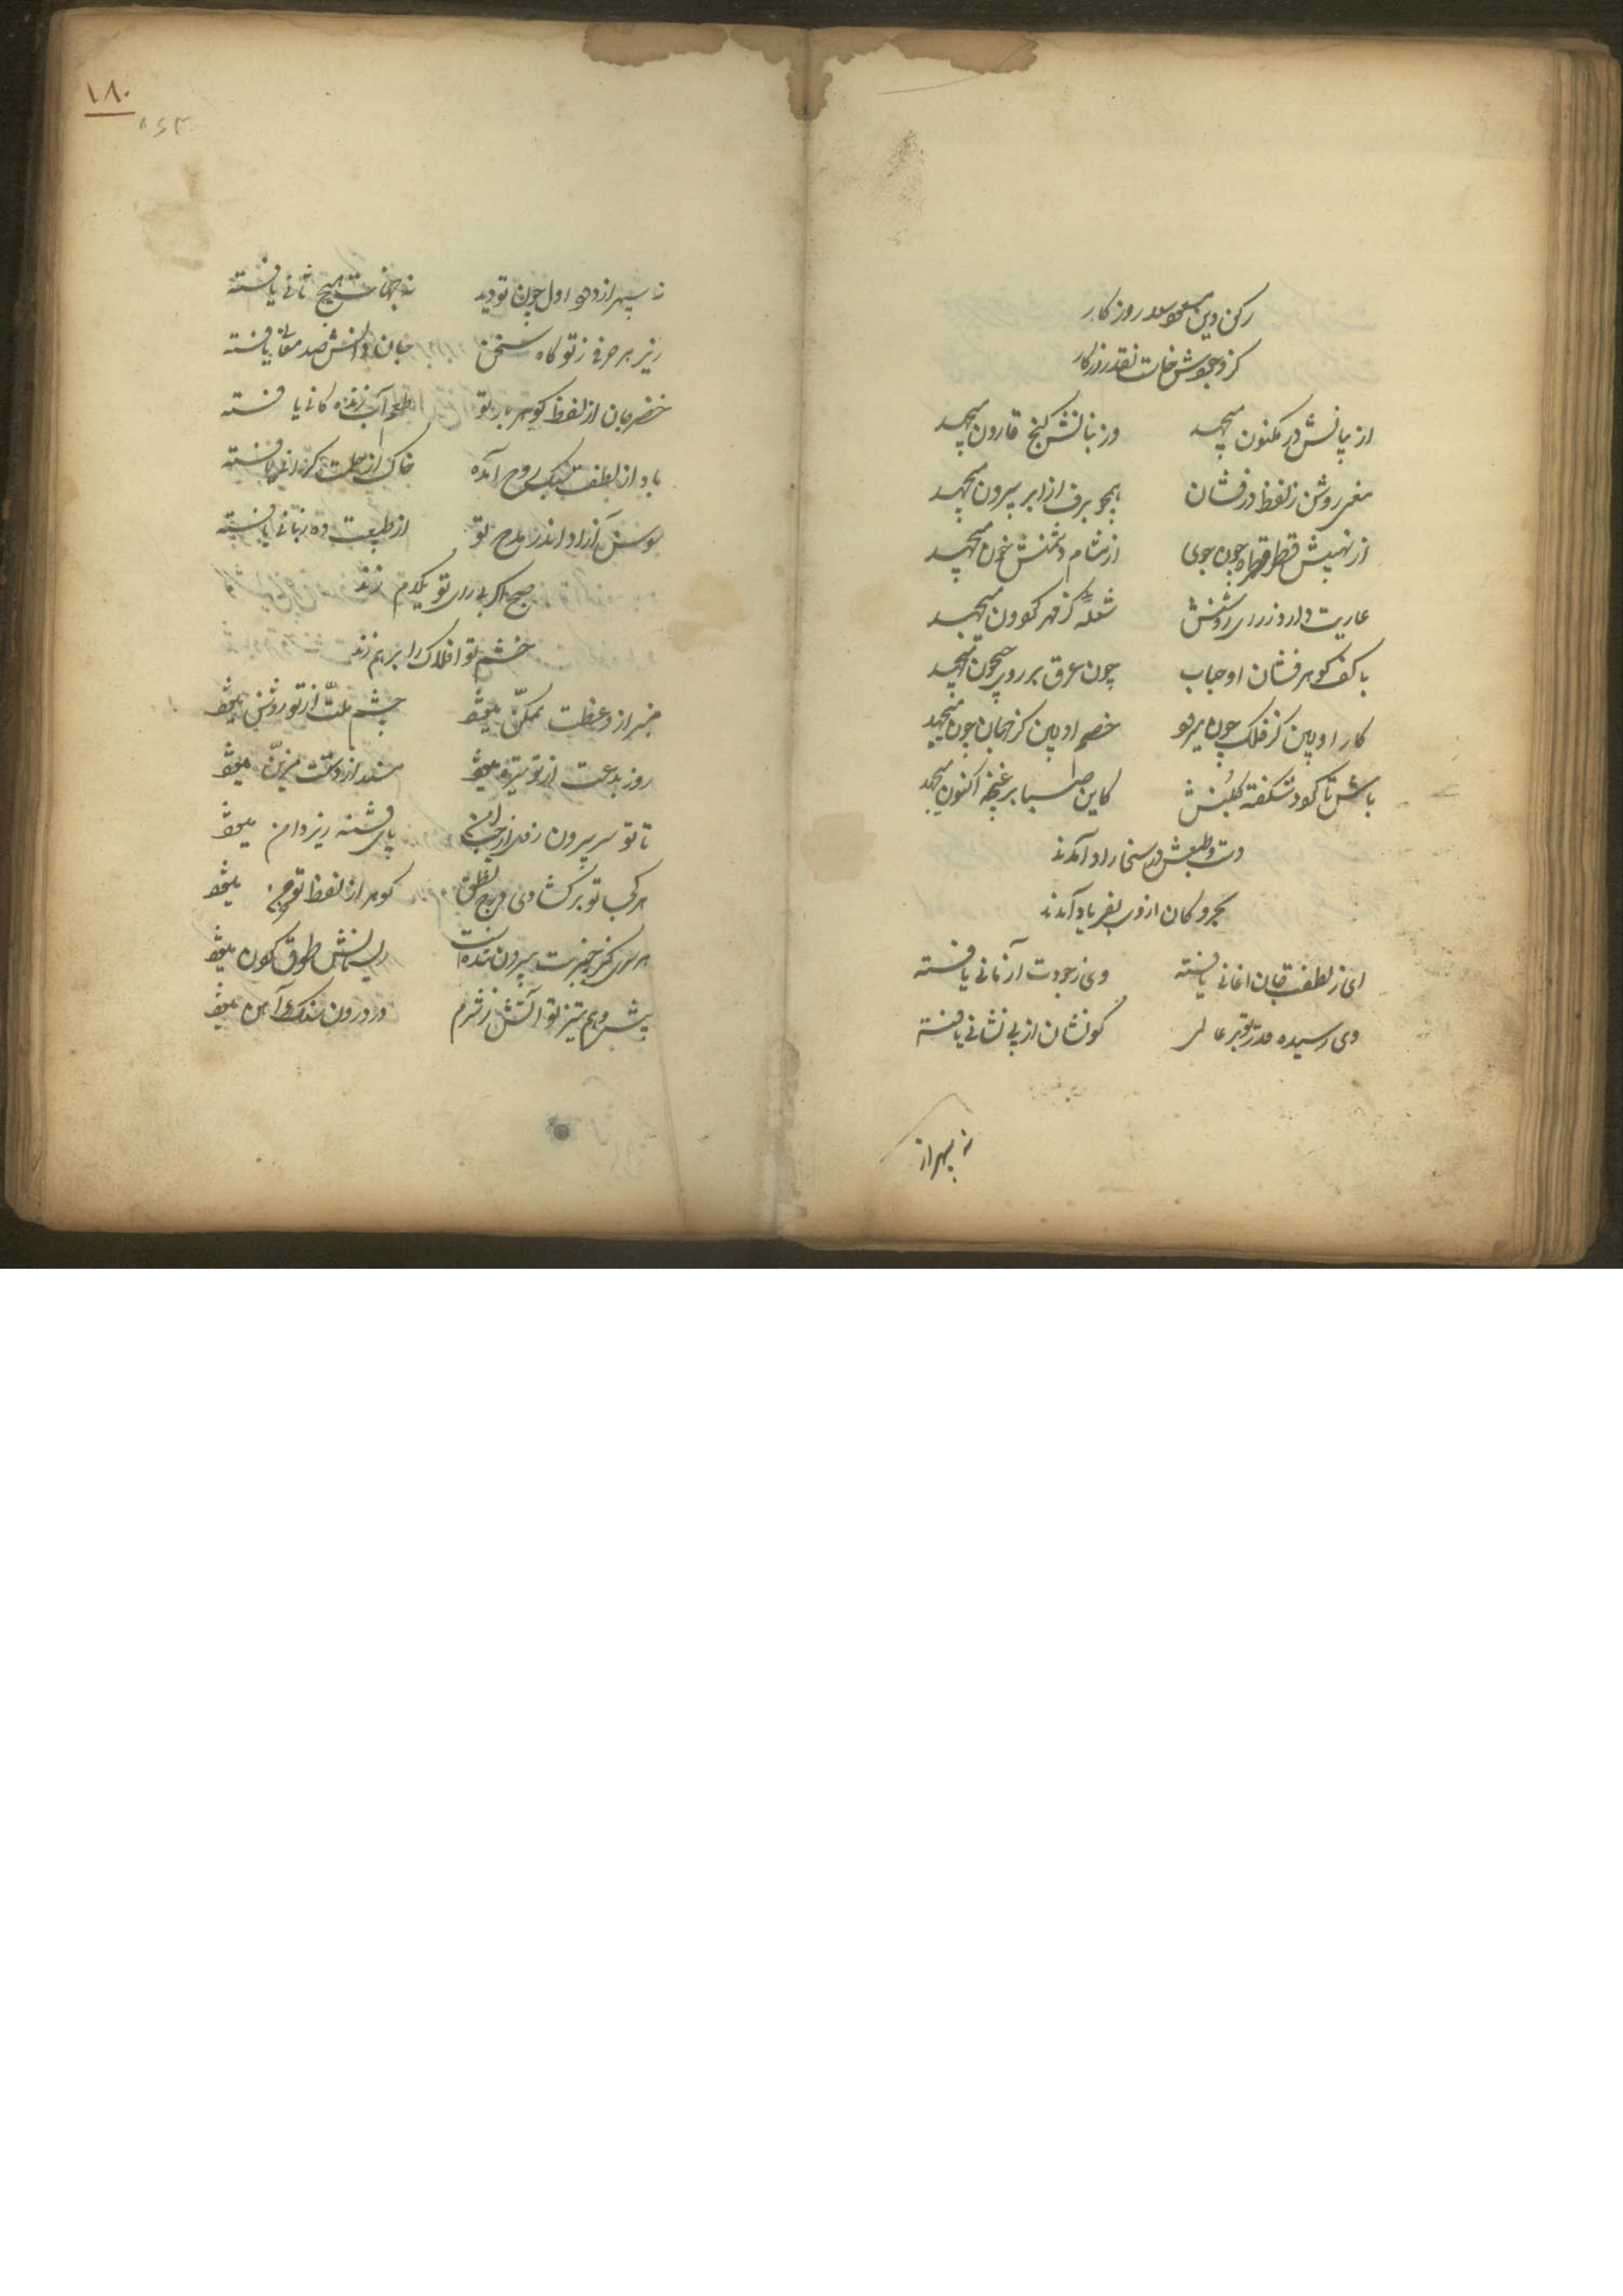 رکن دین مسعود سعد روزکار
کز وجودش خاست نقد روزکار
از بیانش در مکنون میجهد ورزبانش کنج قارون میجهد
معنی روشن ز لفظ درفشان همچو برق از ابر بیرون میجهد
از نهیبش قطره قطره چون خوی از مشام دشمنش خون میجهد
عاریت دارد ز رای روشنش شعلهٔ کز قهر کردون میجهد
با کف کوهر فشان او حباب چون عرق بر روی جیحون میجهد
کار او بین کز فلک چون میرود خصم او بین کز جهان چون میجهد
باش تا کردد شکفته کلبنش کاین صبا بر غنچه اکنون میجهد
دست و طبعش در سخا راد آمدند
بحر و کان از وی بفریاد آمدند
ای ز لطفت جان امانی یافته وی ز جودت آز مانی یافته
وی رسیده قدر تو بر عالمی کو نشان از بی نشانی یافته
نه سپهر از
نه سپهر از دور اول چون تو دید نه جهانت هیچ ثانی یافته
زیر هر حرفی ز تو کاه سخن جان دانش صد معانی یافته
خضر جان از لفظ کوهر بار تو طعم آب زندکانی یافته
باد از لطفت سبک روح آمده خاک از حلمت کرانی یافته
سوسن آزاد اندر مدح تو از طبیعت ده زبانی یافته
صبح اکر بی رای تو یکدم زند
خشم تو افلاک را بر هم زند
منبر از وعظت تمکن میشود چشم ملت از تو روشن میشود
روز بدعت از تو تیره میشود مسند از دستت مزین میشود
تا تو سر بیرون زدی از جیب پای فتنه زیر دامن میشود
هر کجا تو برکشادی درج نطق کوهر از لفظ تو میشود
هر سری کز چنبرت بیرون شدست ریسمانش طوق کردن میشود
پیش وهم تیز تو آتش ز شرم در درون سنک و آهن میشود
۱۸۰